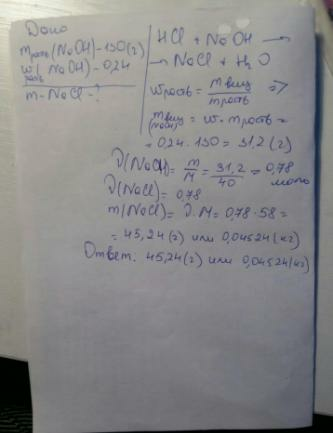 Дано
mраств (NaOH) - 130 (г)
w раств (NaOH) - 0,24
m - NaCl - ?
HCl + NaOH →
→ NaCl + H2O
wраств = m вещ / mраств =>
m вещ (NaOH) = w · mраств =
= 0,24 · 130 = 31,2 (г)
ν(NaOH) = m/M = 31,2/40 = 0,78 моль
ν(NaCl) = 0,78
m(NaCl) = ν · M = 0,78 · 58 =
= 45,24 (г) или 0,04524 (кг)
Ответ: 45,24 (г) или 0,04524 (кг)